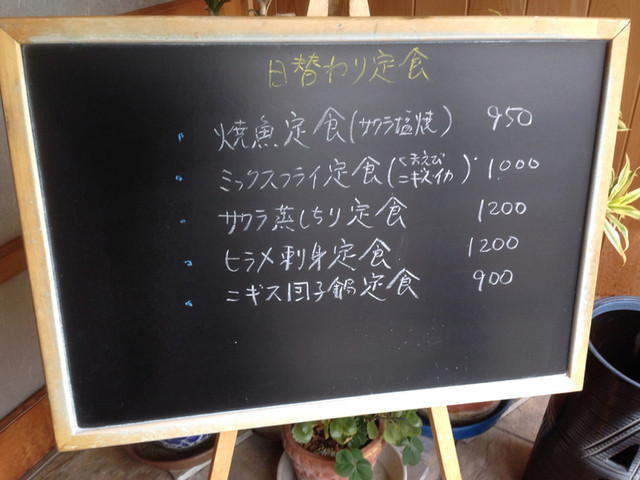 日替わり定食
・焼魚定食(サワラ塩焼) 950
・ミックスフライ定食(くまえび ニギスイカ) 1.000
・サワラ蒸しちり定食 1200
・ヒラメ刺身定食 1200
・ニギス団子鍋定食 900